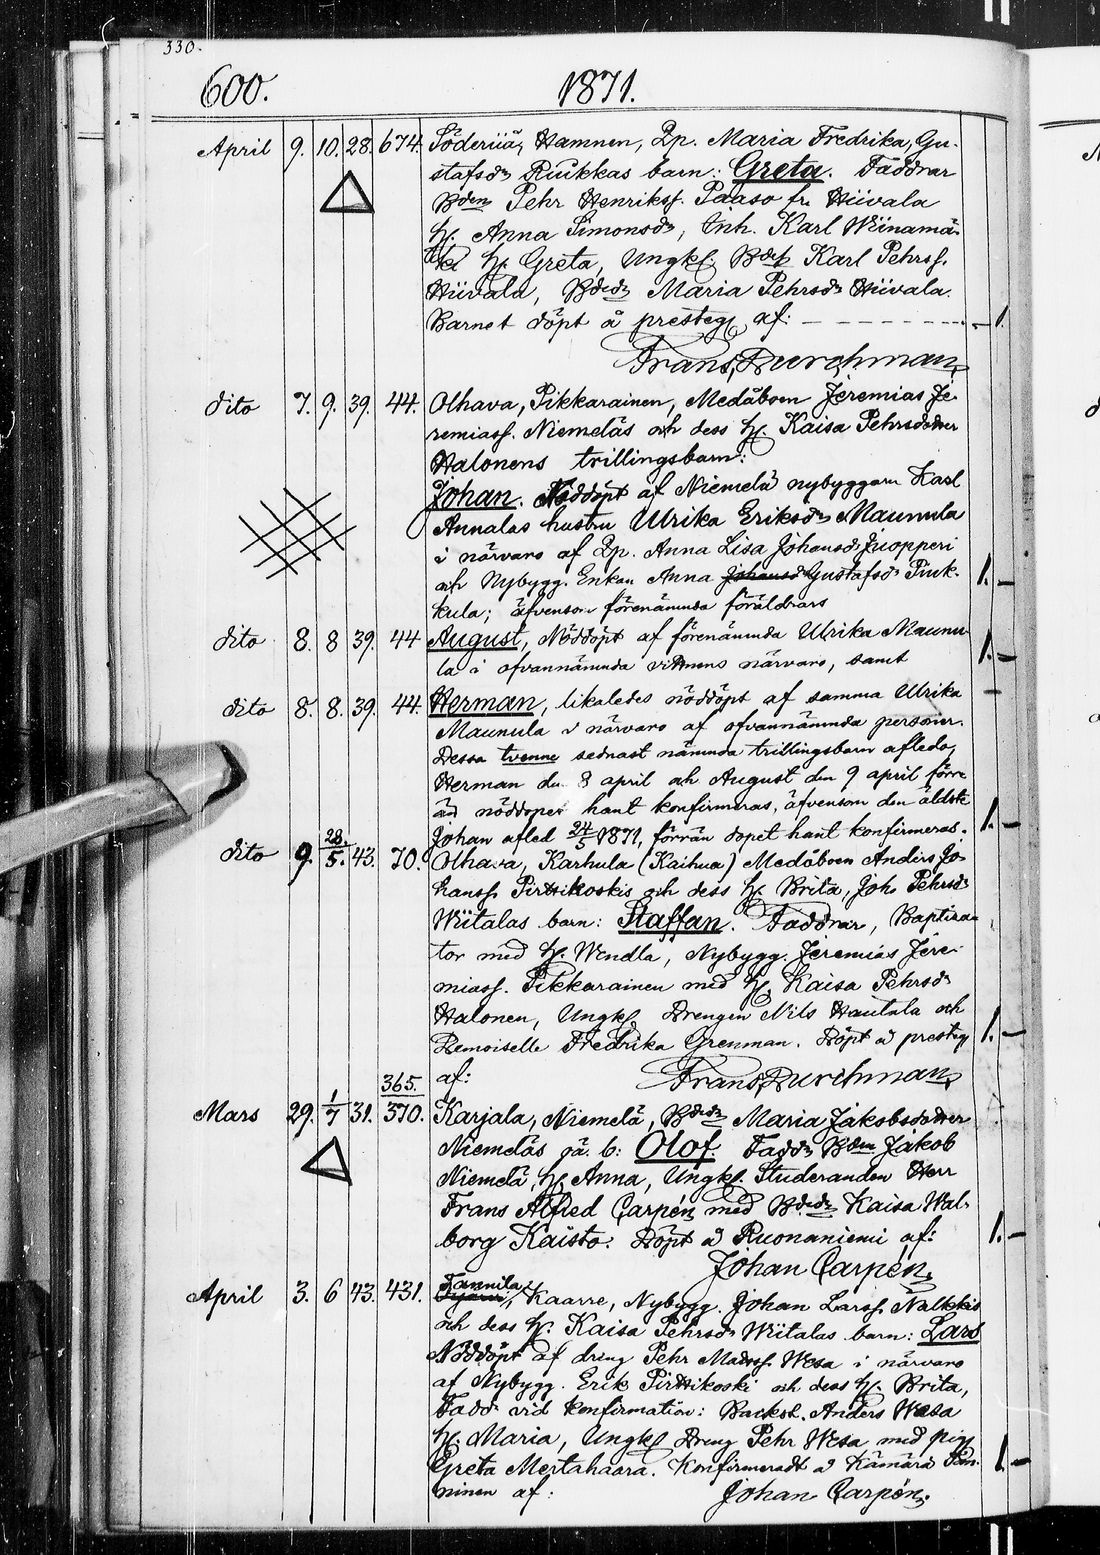 330.
600. 1871.
April 9. 10. 28. 674. Söderiiå, Hamnen, Qp. Maria Fredrika, Gu-
stafsdr Riukkas barn: Greta. Faddrar
Bden Pehr Henrikss. Paaso fr. Hiivala
H. Anna Simonsdr, Inh. Karl Wiinamä-
ki H. Greta, Ungkl. Bdes Karl Pehrss.
Hiivala, Bdedr Maria Pehrsdr Hiivala.
Barnet döpt å presteg. af: 1.
Frans Durchman
dito 7. 9. 39. 44. Olhava, Pikkarainen, Medåboen Jeremias Je-
remiass. Niemeläs och dess H. Kaisa Pehrsdotter
Halonens trillingsbarn:
Johan. Nöddöpt af Niemelä nybyggaren Karl
Annalas hustru Ulrika Eriksdr Maunula
i närvaro af Qp. Anna Lisa Johansdr Juopperi
och Nybygg. Enkan Anna Johansdr Gustafsdr Piuk- 1.
kula; äfvensom förenämnda föräldrars
dito 8. 8 39. 44 August, Nöddöpt af förenämnda Ulrika Maunu-
la i ofvannämnda vittnens närvaro, samt 1.
dito 8. 8. 39. 44. Herman, likaledes nöddöpt af samma Ulrika
Maunula i närvaro af ofvannämnda personer.
Dessa tvenne sednast nämnda trillingsbarn afledo,
Herman den 8 april och August den 9 april förre
än nöddopet hant konfirmeras, äfvensom den äldste
Johan afled 24/5 1871, förrän dopet hant konfirmeras. 1.
dito 9. 28./5. 43. 70. Olhava, Karhula (Kaihua) Medåboen Anders Jo-
hanss. Pirttikoskis och dess H. Brita, Joh. Pehrsdr
Wiitalas barn: Staffan. Faddrar, Baptisa-
tor med H. Wendla, Nybygg. Jeremias Jere-
miass. Pikkarainen med H. Kaisa Pehrsdr
Halonen, Ungkl. Drengen Nils Hautala och
Demoiselle Fredrika Grenman. Döpt å presteg. 1.
af: Frans Durchman
365.
Mars 29. 1/7 31. 370. Karjala, Niemelä, Bdedr Maria Jakobsdotter
Niemeläs oä. b: Olof. Faddr Bden Jakob
Niemelä, H. Anna, Ungkl. Studeranden Herr
Frans Alfred Carpén med Bdedr Kaisa Wal-
borg Kaisto. Döpt å Ruonaniemi af: 1.
Johan Carpén.
Tannila
April 3. 6 43. 431. Kaarre, Nybygg. Johan Larss. Nalkkis
och dess H. Kaisa Pehrsdr Wiitalas barn: Lars
Nöddöpt af dreng Pehr Madss. Wesa i närvaro
af Nybygg. Erik Pirttikoski och dess H. Brita,
Faddr vid konfirmation: Backst. Anders Wesa
H. Maria, Ungkl Dreng Pehr Wesa med pig.
Greta Mertahaara. Konfirmeradt å Kämärä Tan- 1.
ninen af: Johan Carpén.